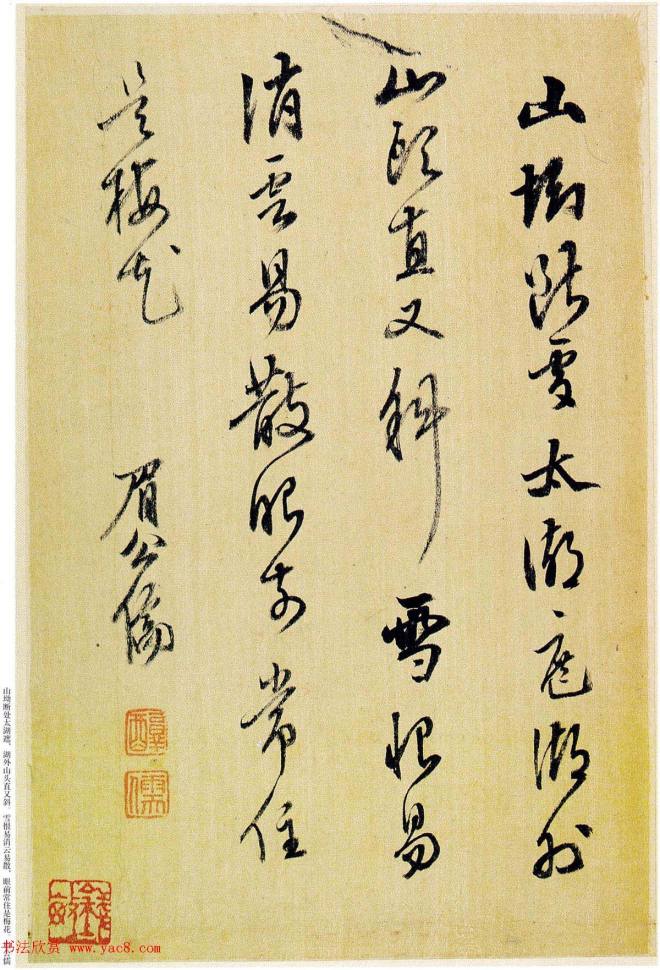 山坳断处太湖遮湖外
山头直又斜雪恨易
消云易散眼前常住
是梅花
眉公儒
醇儒
山坳断处太湖遮，湖外山头直又斜。雪恨易消云易散，眼前常住是梅花。
书法欣赏 www.yac8.com